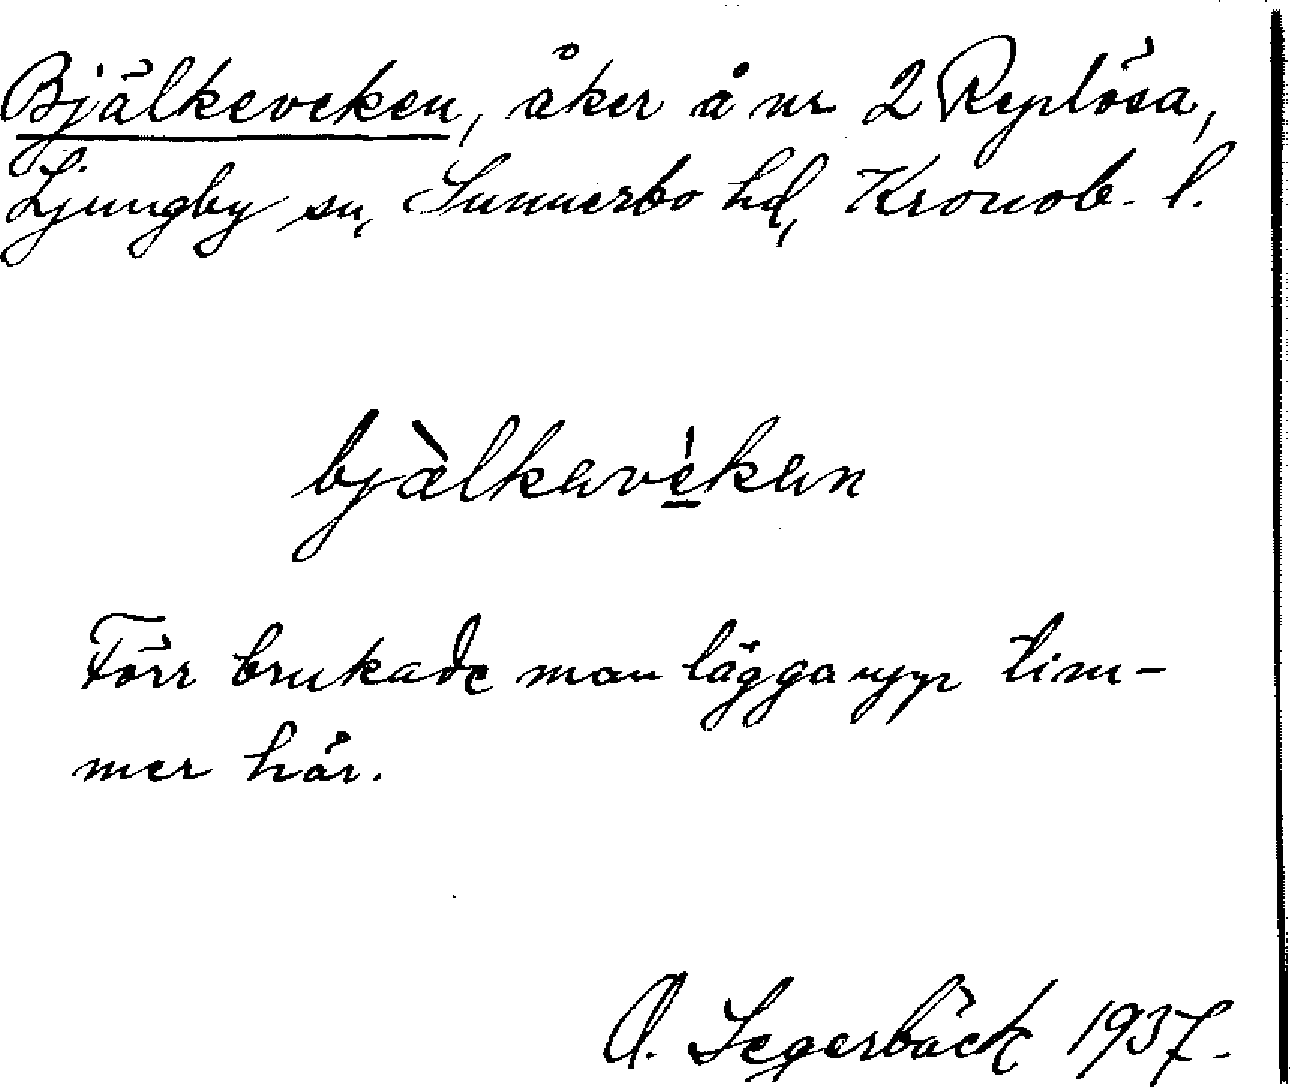 Bjälkeveken, åker å nr 2 Replösa,
Ljungby sn, Sunnerbo hd, Kronob. l.
bjæ̀lkavèkan
Förr brukade man lägga upp tim-
mer här.
A. Segerbäck 1937.